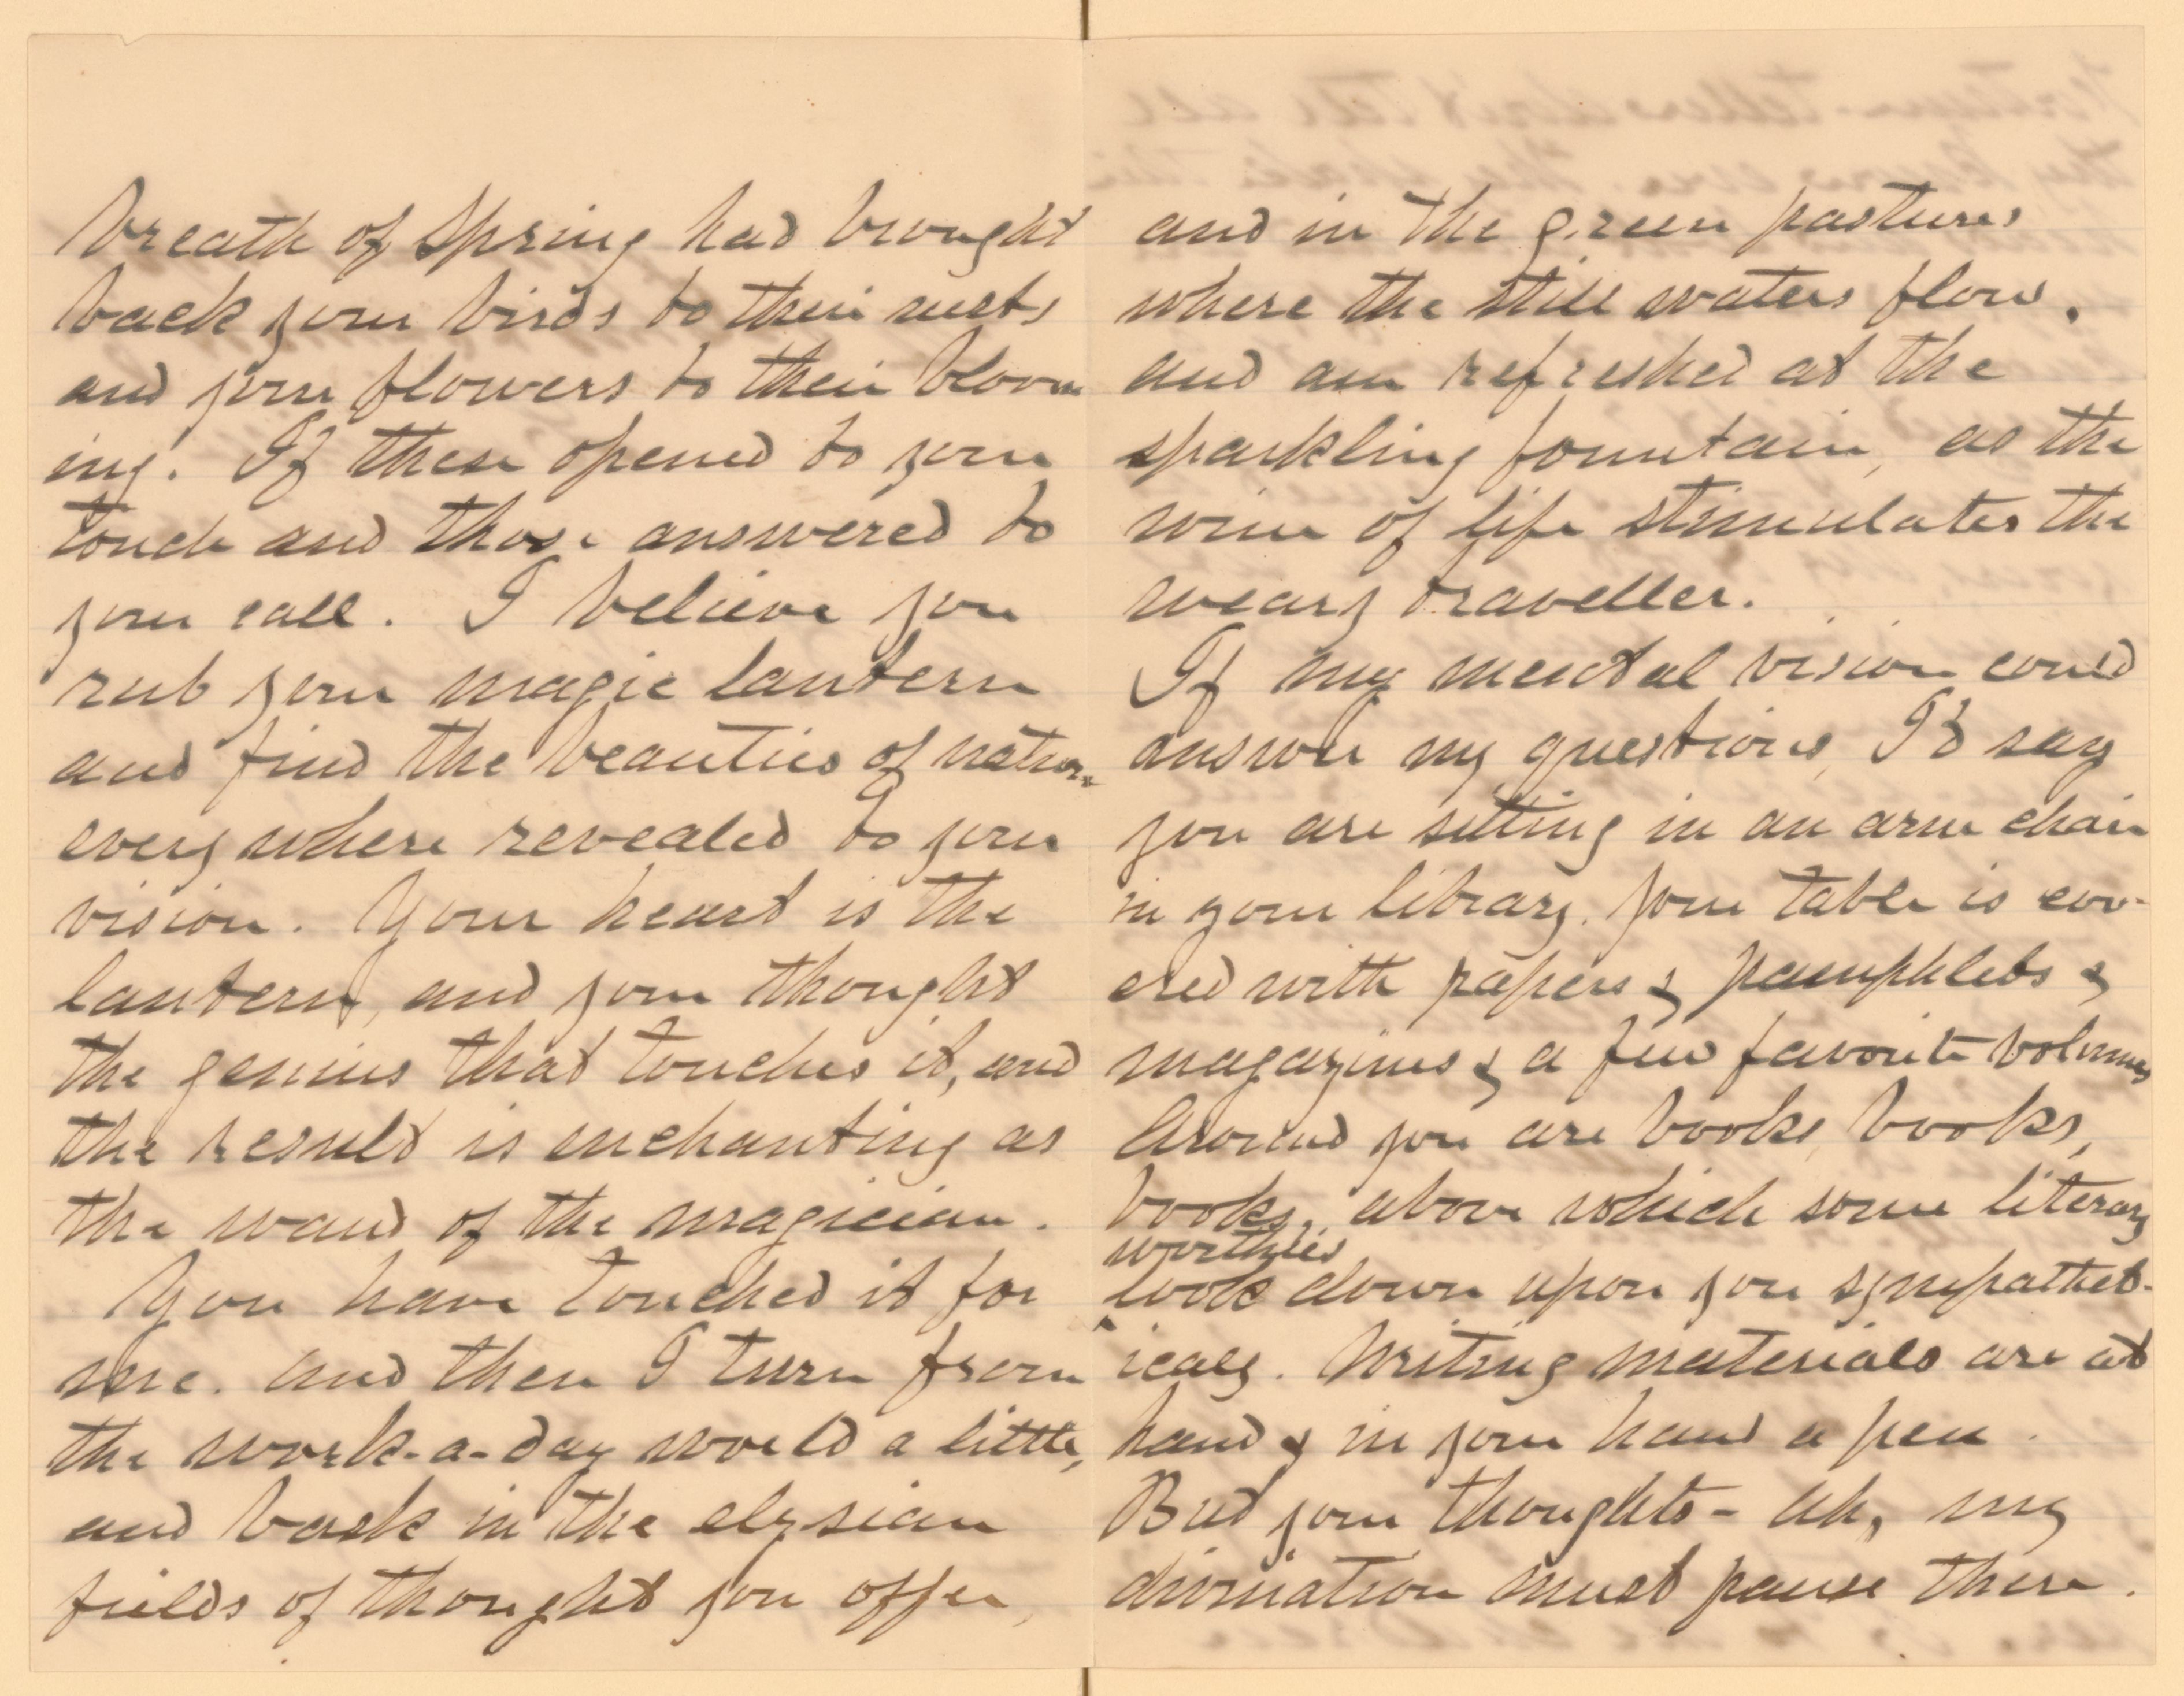 breath of Spring had brought
back your birds to their nests
and your flowers to their bloom
ing. If these opened to your
touch and those answered to
your call. I believe you
rub your magic lantern
and find the beauties of nature
every where revealed to your
vision. Your heart is the
lantern, and your thought
the genius that touches it, and
the result is enchanting as
the wand of the magician.
You have touched it for
me. and then I turn from
the work-a-day world a little,
and bask in the elysian
fields of thought you offer,
and in the green pastures
where the still waters flow.
and am refreshed at the
sparkling fountain, as the
wine of life stimulates the
weary traveller.
If my mental vision could
answer my questions, I'd say
you are sitting in an arm chair
in your library. Your table is cov-
ered with papers & pamphlets &
magazines & a few favorite volumes
Around you are books, books,
books, above which some literary
worthies
look down upon you sympathet-
icaly. Writing materials are at
hand & in your hand a pen.
But your thoughts - ah, my
divination must pause there.